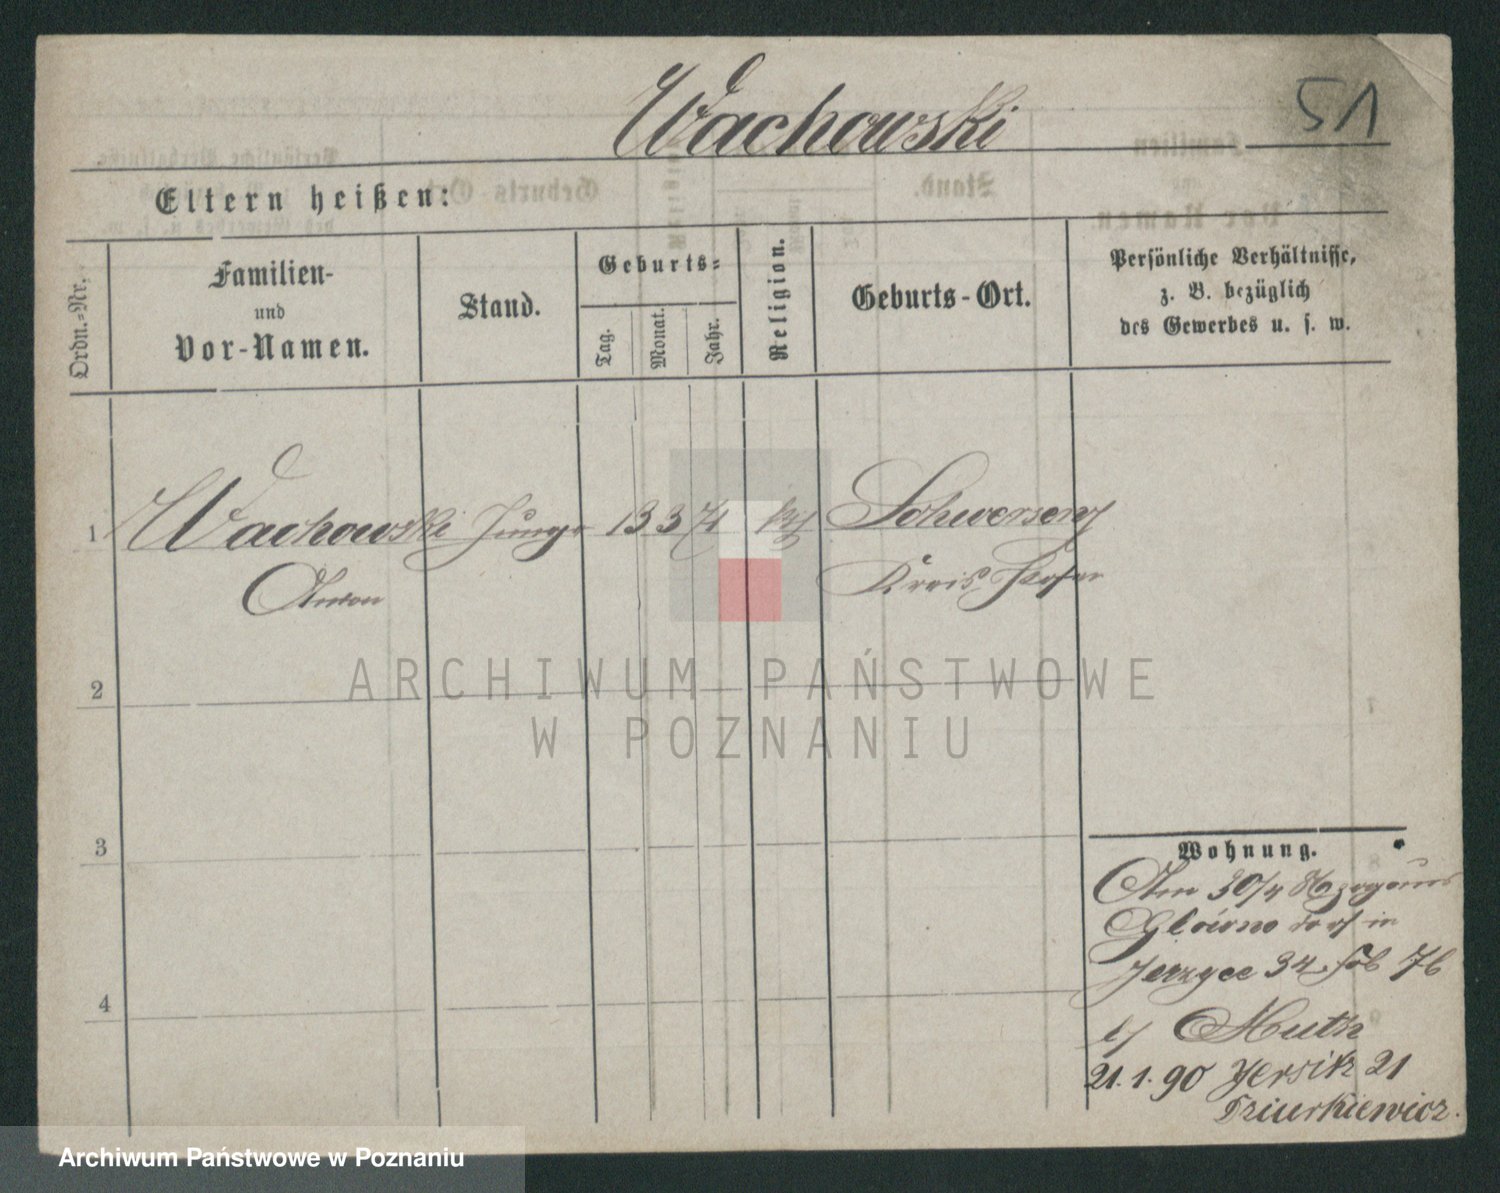 Wachowski
51
Eltern heißen:
Ordn.-Nr.
Familien-
und
Vor-Namen.
Stand.
Geburts-
Tag.
Monat.
Jahr.
Religion.
Geburts-Ort.
Persönliche Verhältnisse,
z. B. bezüglich
des Gewerbes u. s. w.
1 Wachowski 13 3 71 kth Schwersenz
Anton Kreis Posen
2
ARCHIWUM PAŃSTWOWE
W POZNANIU
3
Wohnung.
Am 30/4
in
34
4
b/ Muth
21.1.90 Jersitz 21
Dziurkiewicz.
Archiwum Państwowe w Poznaniu